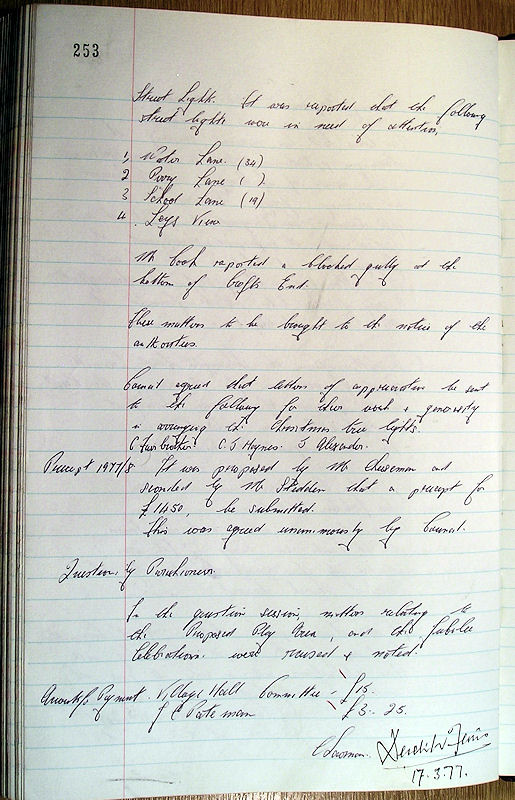 253
Street Lights. It was reported that the following
street lights were in need of attention,
1, Water Lane. (34)
2 Perry Lane ( ).
3 School Lane (19)
4. Leys View
Mr Cook reported a blocked gully at the
bottom of Crofts End.
These matters to be brought to the notice of the
authorities.
Council agreed that letters of appreciation be sent
to the following for their work + generosity
in arranging the Christmas tree lights.
C Fairbrother C. J Haynes. J Alexander.
Precept 1977/8 It was proposed by Mr Chairman and
seconded by Mr that a precept for
£1450, be submitted.
This was agreed unanimously by Council.
Questions by Parishioners.
In the question session, matters relating to
the Proposed Play Area, and the Jubilee
Celebrations were raised + noted.
Accounts for Payment. Village Hall Committee - £15.
F C Pateman £3. 25.
Chairman.
17.3.77.